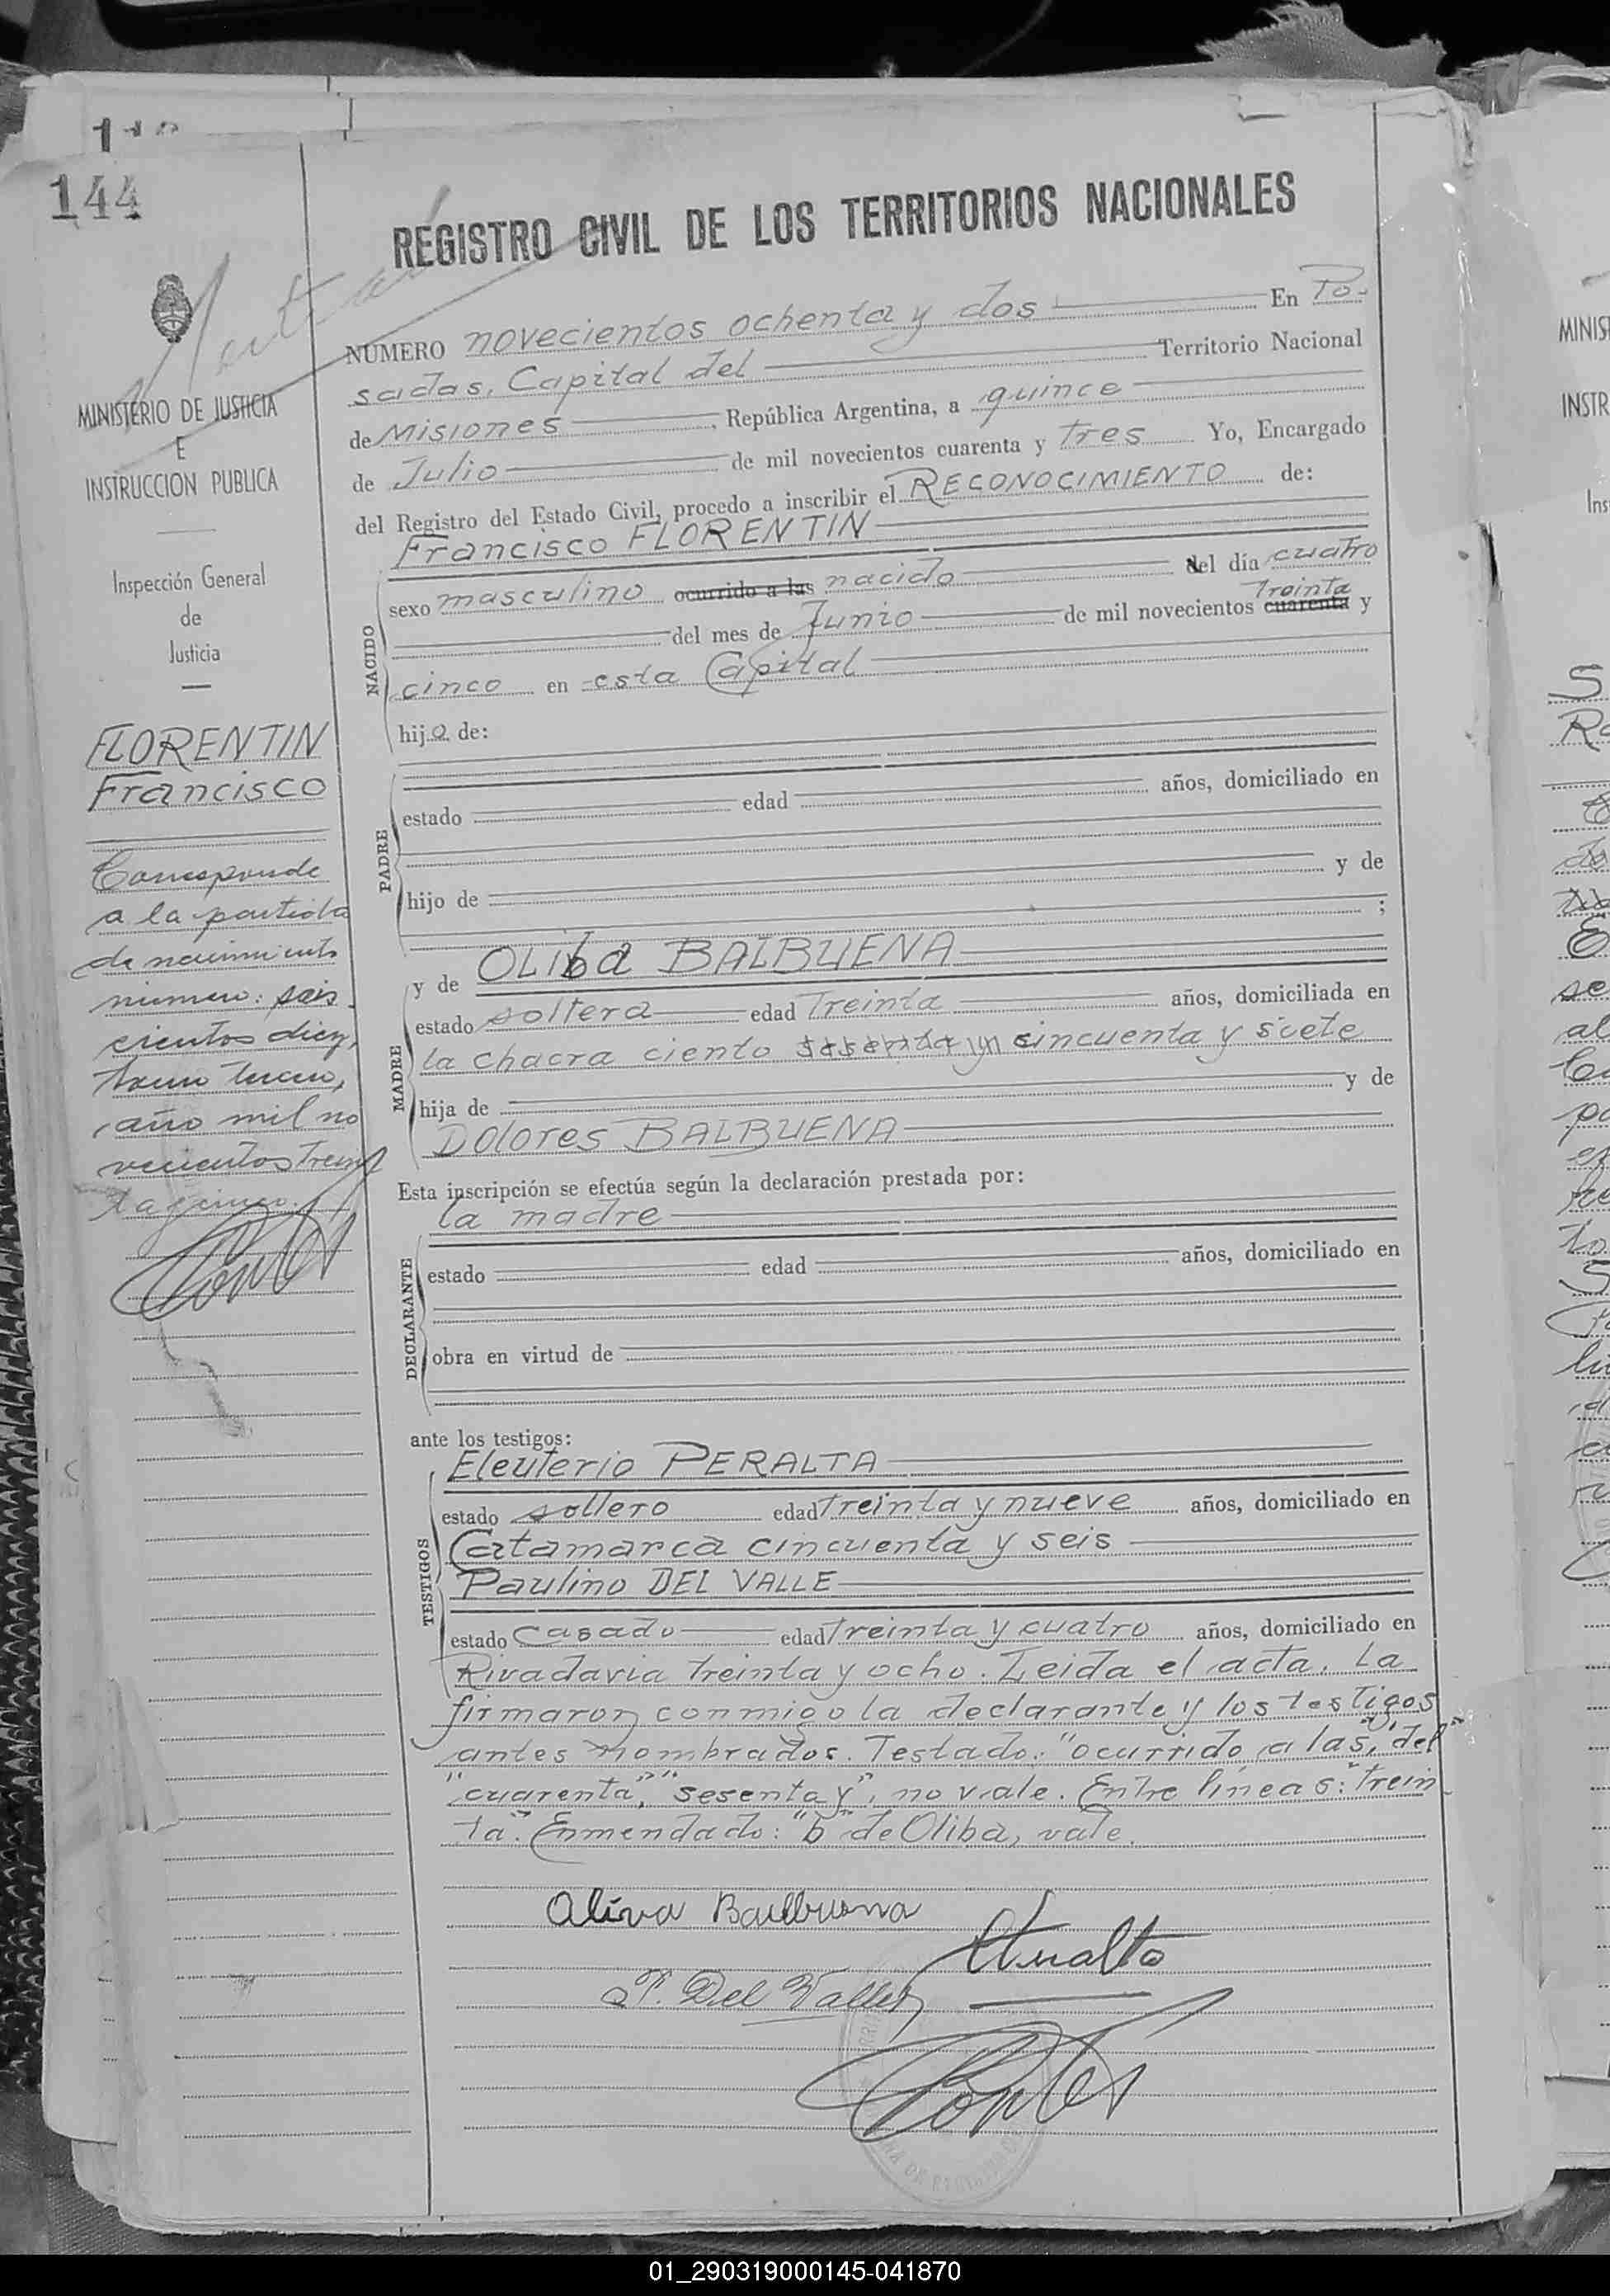 144
REGISTRO CIVIL DE LOS TERRITORIOS NACIONALES
MINISTERIO DE JUSTICIA
E
INSTRUCCION PUBLICA
Inspección General
de
Justicia
FLORENTIN
Francisco
Corresponde
a la partida
de nacimiento
número: seis
cientos diez,
tomo tercero,
año mil no
vecientos trein
ta y cinco.
NUMERO novecientos ochenta y dos En Po-
sadas, Capital del Territorio Nacional
de Misiones, República Argentina, a quince
de Julio de mil novecientos cuarenta y tres Yo, Encargado
del Registro del Estado Civil, procedo a inscribir el RECONOCIMIENTO de:
Francisco FLORENTIN
NACIDO
sexo masculino ocurrido a las nacido del día cuatro
treinta
del mes de Junio de mil novecientos cuarenta y
cinco en esta Capital
hijo de:
PADRE
estado edad años, domiciliado en
hijo de y de
;
MADRE
y de OLIbA BALBUENA
estado soltera edad Treinta años, domiciliada en
la chacra ciento sesenta y un cincuenta y siete
hija de y de
Dolores BALBUENA
Esta inscripción se efectúa según la declaración prestada por:
la madre
DECLARANTE
estado edad años, domiciliado en
obra en virtud de
ante los testigos:
TESTIGOS
Eleuterio PERALTA
estado soltero edad treinta y nueve años, domiciliado en
Catamarca cincuenta y seis
Paulino DEL VALLE
estado Casado edad treinta y cuatro años, domiciliado en
Rivadavia treinta y ocho. Leida el acta, la
firmaron conmigo la declarante y los testigos
antes nombrados. Testado: "ocurrido a las", "del"
"cuarenta", "sesenta y", no vale. Entre líneas: "trein
ta". Enmendado: "b" de Oliba, vale.
Oliva Baulbuena
P. Del Valle
01_290319000145-041870